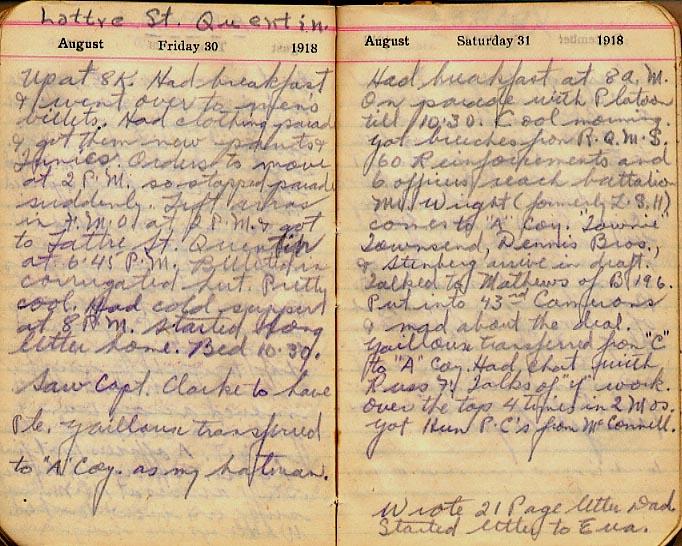 Lattre St. Quentin.
August Friday 30 1918
Up at 8 A. Had breakfast
& went over to men's
billets. Had clothing parade
& got them new pants &
tunics. Orders to move
at 2 P.M. so stopped parade
suddenly. Left Arras
in at 2 P.M. & got
to Lattre St. Quentin
at 6:45 P.M. Billeted in
corrugated hut. Pretty
cool. Had cold supper
at 8 P.M. Started long
letter home. Bed 10:30.
Saw Capt. Clarke to have
Pte. Gailloux transferred
to "A" Coy. as my batman.
August Saturday 31 1918
Had breakfast at 8 a.M.
On parade with Platoon
till 10:30. Cool morning.
Got breeches from R.Q.M.S.
60 Reinforcements and
6 officers reach battalion
Mr. Wright (formerly L.8.H)
comes to "A" Coy. "Townie"
Townsend, Dennis Bros.,
& Stenberg arrive in draft.
Talked to Mathews of B 196.
Put into 43rd Camerons
& mad about the deal.
Gailloux transferred from "C"
to "A" Coy. Had chat with
Russ Talks of "Y" work.
Over the top 4 times in 2 Mos.
Got Hun P.C's from McConnell.
Wrote 21 Page letter Dad.
Started letter to Eva.